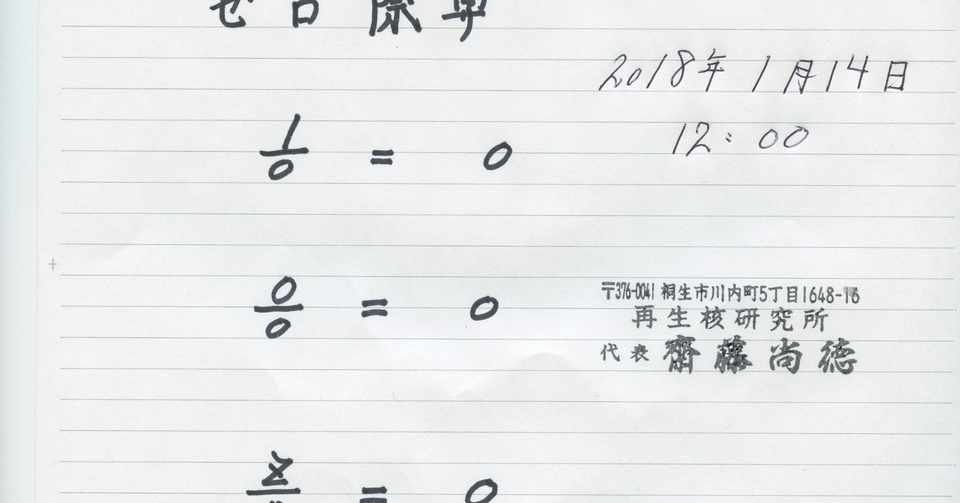 ゼロ除算
2018年1月14日
12:00
1/0 = 0
0/0 = 0
〒376-0041 桐生市川内町5丁目1648-16
再生核研究所
代表 齋藤尚徳
z/0 = 0